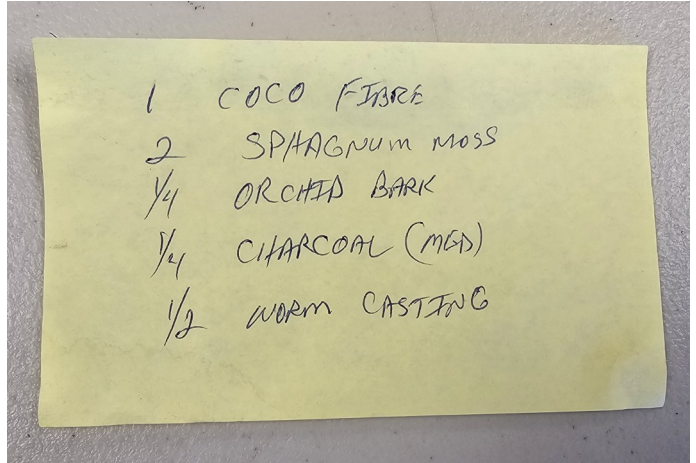 1 COCO FIBRE
2 SPHAGNUM MOSS
1/4 ORCHID BARK
1/4 CHARCOAL (MED)
1/2 WORM CASTING